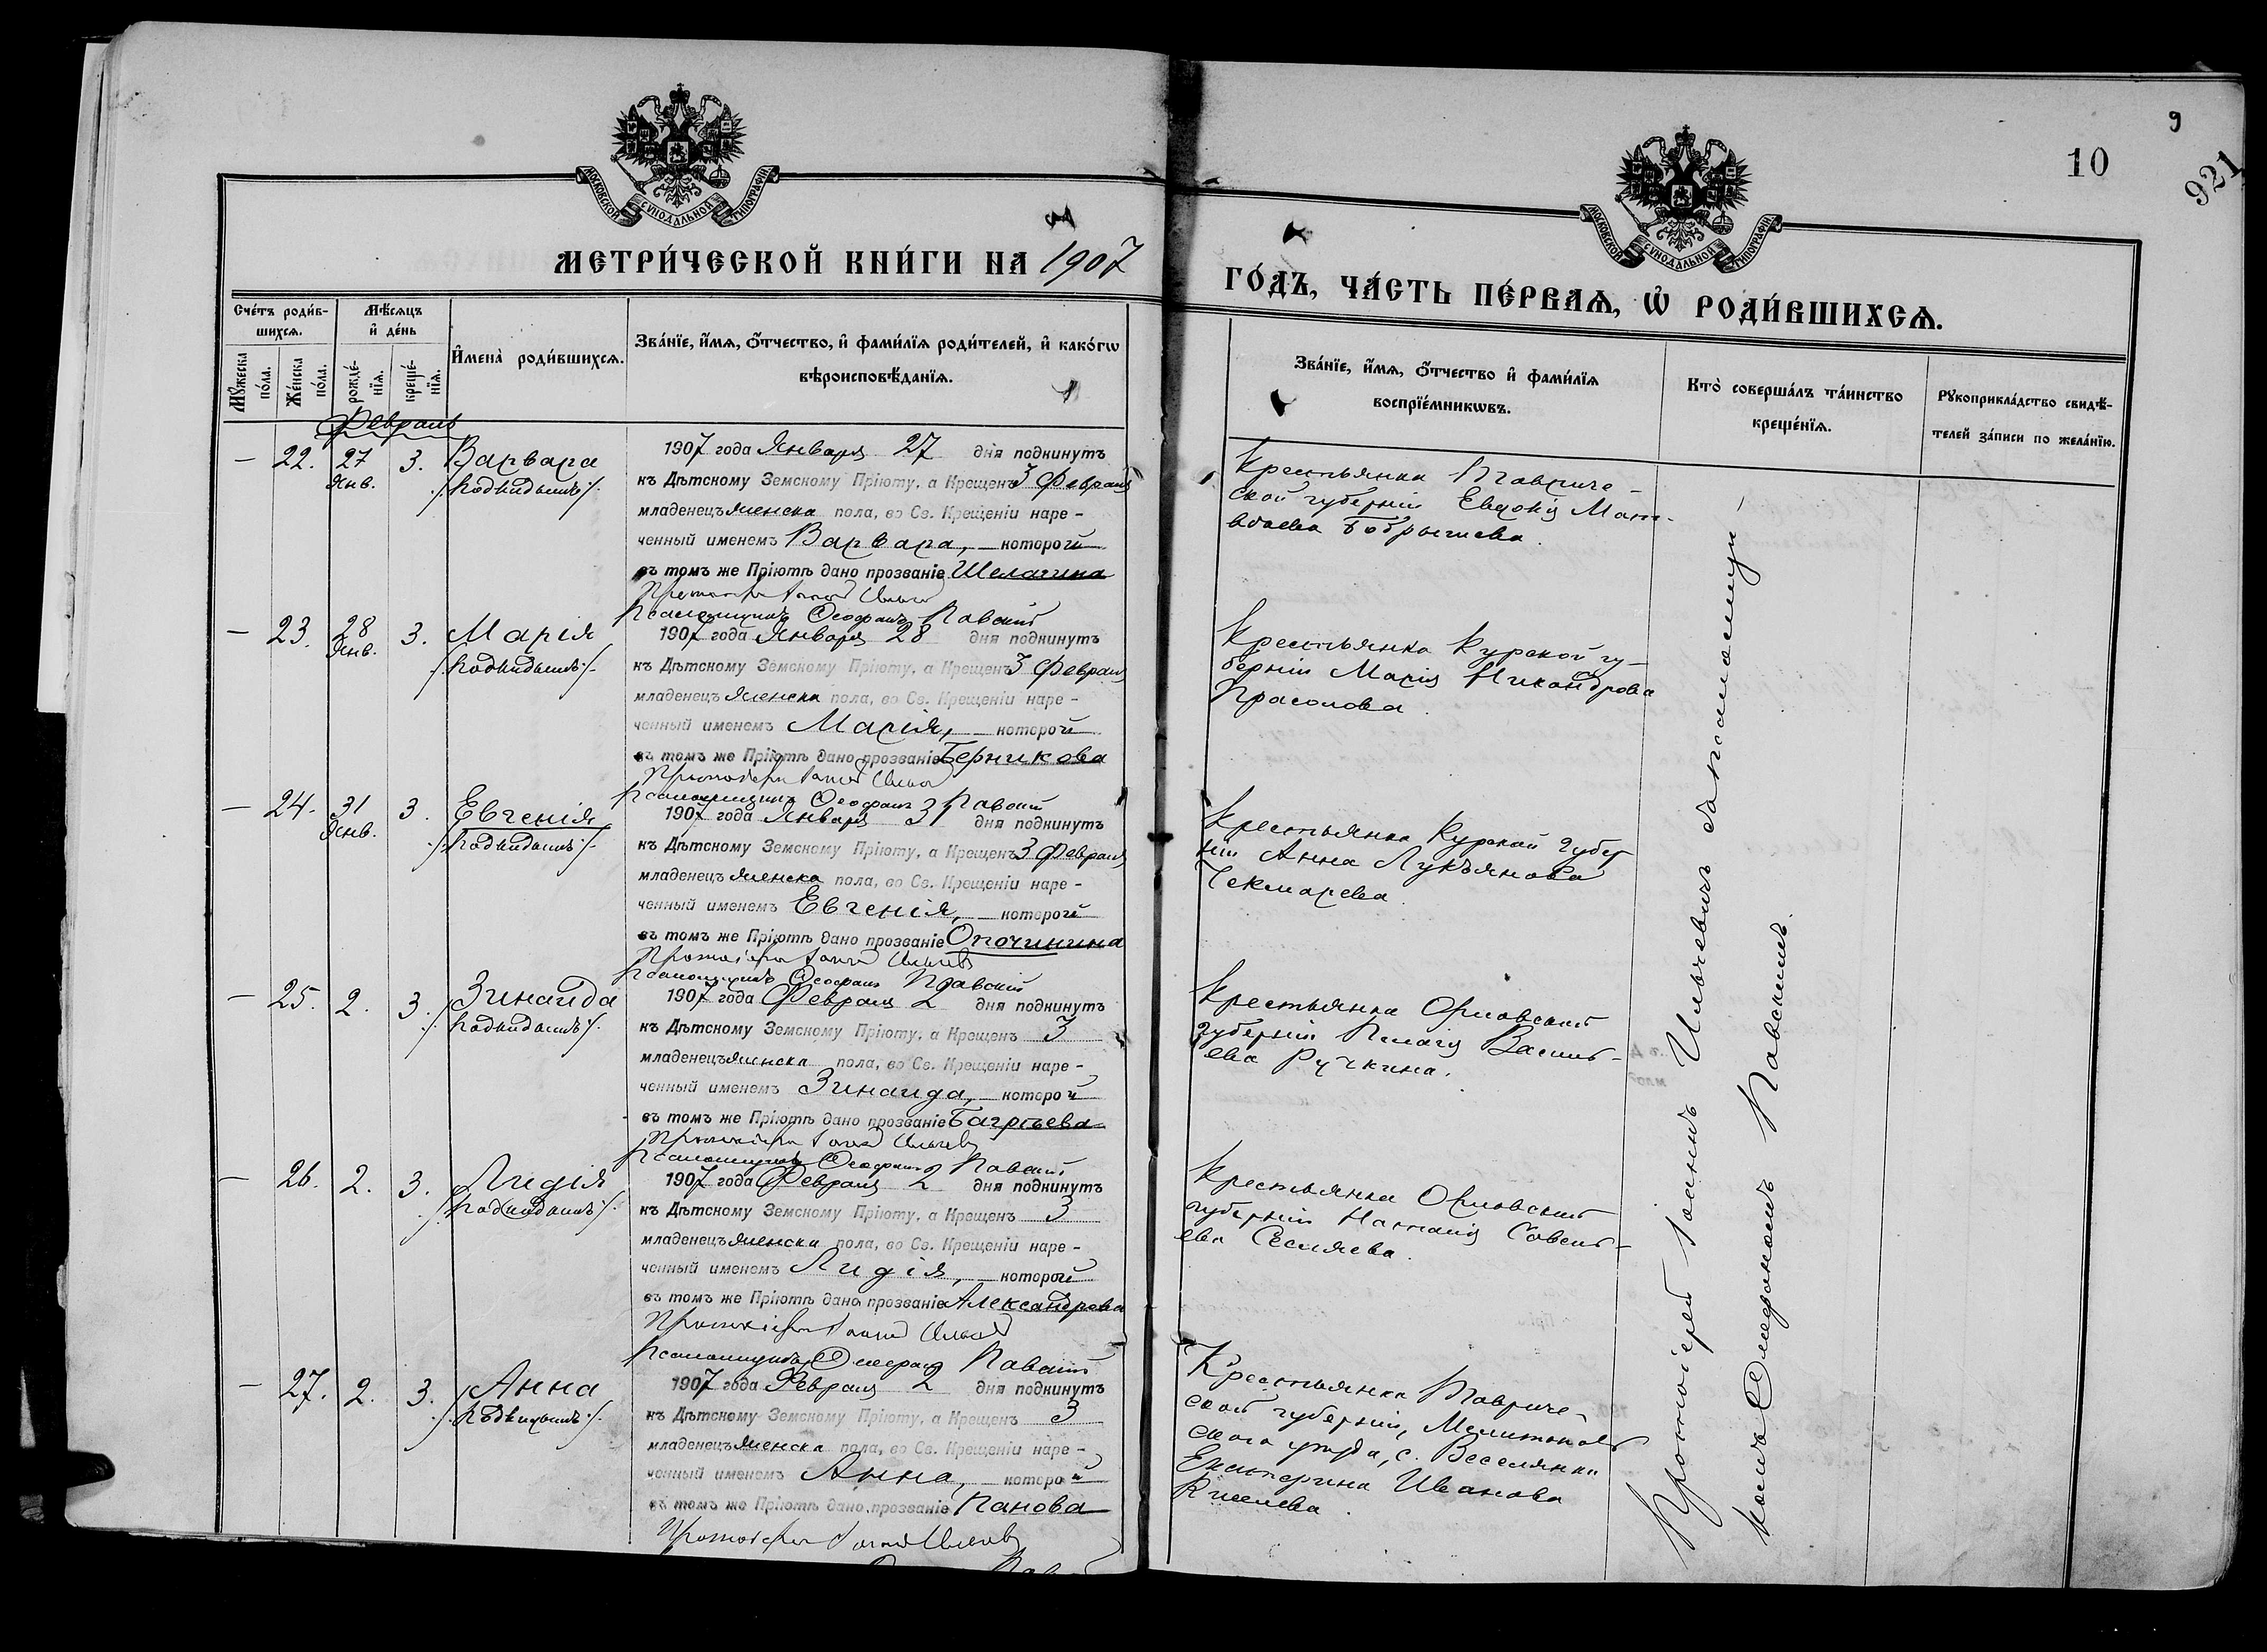 9
10
921
МОСКОВСКОЙ СѴНОДАЛЬНОЙ ТИПОГРАФІИ
МОСКОВСКОЙ СѴНОДАЛЬНОЙ ТИПОГРАФІИ
МЕТРИ́ЧЕСКОЙ КНИ́ГИ НА 1907
ГО́ДЪ, ЧА́СТЬ ПЕ́РВАѦ, Ѡ҆ РОДИ́ВШИХСѦ.
Сче́тъ роди́в-
шихсѧ.
Мꙋ́жеска по́ла.
Же́нска по́ла.
Мѣ́сѧцъ
и҆ де́нь
рожде́-нїѧ.
креще́-нїѧ.
И҆мена̀ роди́вшихсѧ.
Зва́нїе, и҆́мѧ, ѻ҆́тчество, и҆ фами́лїѧ роди́телей, и҆ како́гѡ
вѣроисповѣ́данїѧ.
Зва́нїе, и҆́мѧ, ѻ҆́тчество и҆ фами́лїѧ
воспрїе́мникѡвъ.
Кто̀ соверша́лъ та́инство
креще́нїѧ.
Рꙋкоприкла́дство свидѣ́-
телей за́писи по жела́нїю.
Февраль
— 22. 27 Янв. 3. Варвара
/.Подкидышъ/.
1907 года Января 27 дня подкинутъ
къ Дѣтскому Земскому Пріюту, а Крещенъ 3 Февраля
младенецъ женска пола, во Св. Крещеніи наре-
ченный именемъ Варвара, — которой
въ томъ же Пріютѣ дано прозваніе Шелагина
Протоіерей Іоаннъ Ильичевъ
Псаломщикъ Ѳеофанъ Павскій
Крестьянка Тавриче-
ской губерніи Евдокія Мат-
вѣева Бобрышева.
— 23. 28 Янв. 3. Марія
/.Подкидышъ/.
1907 года Января 28 дня подкинутъ
къ Дѣтскому Земскому Пріюту, а Крещенъ 3 Февраля
младенецъ женска пола, во Св. Крещеніи наре-
ченный именемъ Марія, — которой
въ томъ же Пріютѣ дано прозваніе Берникова
Протоіерей Іоаннъ Ильичевъ
Псаломщикъ Ѳеофанъ Павскій
Крестьянка Курской гу-
берніи Марія Никандрова
Прасолова.
— 24. 31 Янв. 3. Евгенія
/.Подкидышъ/.
1907 года Января 31 дня подкинутъ
къ Дѣтскому Земскому Пріюту, а Крещенъ 3 Февраля
младенецъ женска пола, во Св. Крещеніи наре-
ченный именемъ Евгенія, — которой
въ томъ же Пріютѣ дано прозваніе Опочинина
Протоіерей Іоаннъ Ильичевъ
Псаломщикъ Ѳеофанъ Павскій
Крестьянка Курской губер
ніи Анна Лукъянова
Чекмарева.
— 25. 2. 3. Зинаида
/.Подкидышъ/.
1907 года Февраля 2 дня подкинутъ
къ Дѣтскому Земскому Пріюту, а Крещенъ 3
младенецъ женска пола, во Св. Крещеніи наре-
ченный именемъ Зинаида, — которой
въ томъ же Пріютѣ дано прозваніе Багрѣева
Протоіерей Іоаннъ Ильичевъ
Псаломщикъ Ѳеофанъ Павскій
Крестьянка Орловской
губерніи Пелагія Василь-
ева Ручкина.
— 26. 2. 3. Лидія
/.Подкидышъ/.
1907 года Февраля 2 дня подкинутъ
къ Дѣтскому Земскому Пріюту, а Крещенъ 3
младенецъ женска пола, во Св. Крещеніи наре-
ченный именемъ Лидія, — которой
въ томъ же Пріютѣ дано прозваніе Александрова
Протоіерей Іоаннъ Ильичевъ
Псаломщикъ Ѳеофанъ Павскій
Крестьянка Орловской
губерніи Наталія Савель-
ева
— 27. 2. 3. Анна
/.Подкидышъ/.
1907 года Февраля 2 дня подкинутъ
къ Дѣтскому Земскому Пріюту, а Крещенъ 3
младенецъ женска пола, во Св. Крещеніи наре-
ченный именемъ Анна, — которой
въ томъ же Пріютѣ дано прозваніе Панова
Протоіерей Іоаннъ Ильичевъ
Крестьянка Тавриче-
ской губерніи, Мелитополь
скаго уѣзда, с. Веселянки
Екатерина Иванова
Киселева.
Протоіерей Іоаннъ Ильичевъ съ псаломщи-
комъ Ѳеофаномъ Павскимъ.